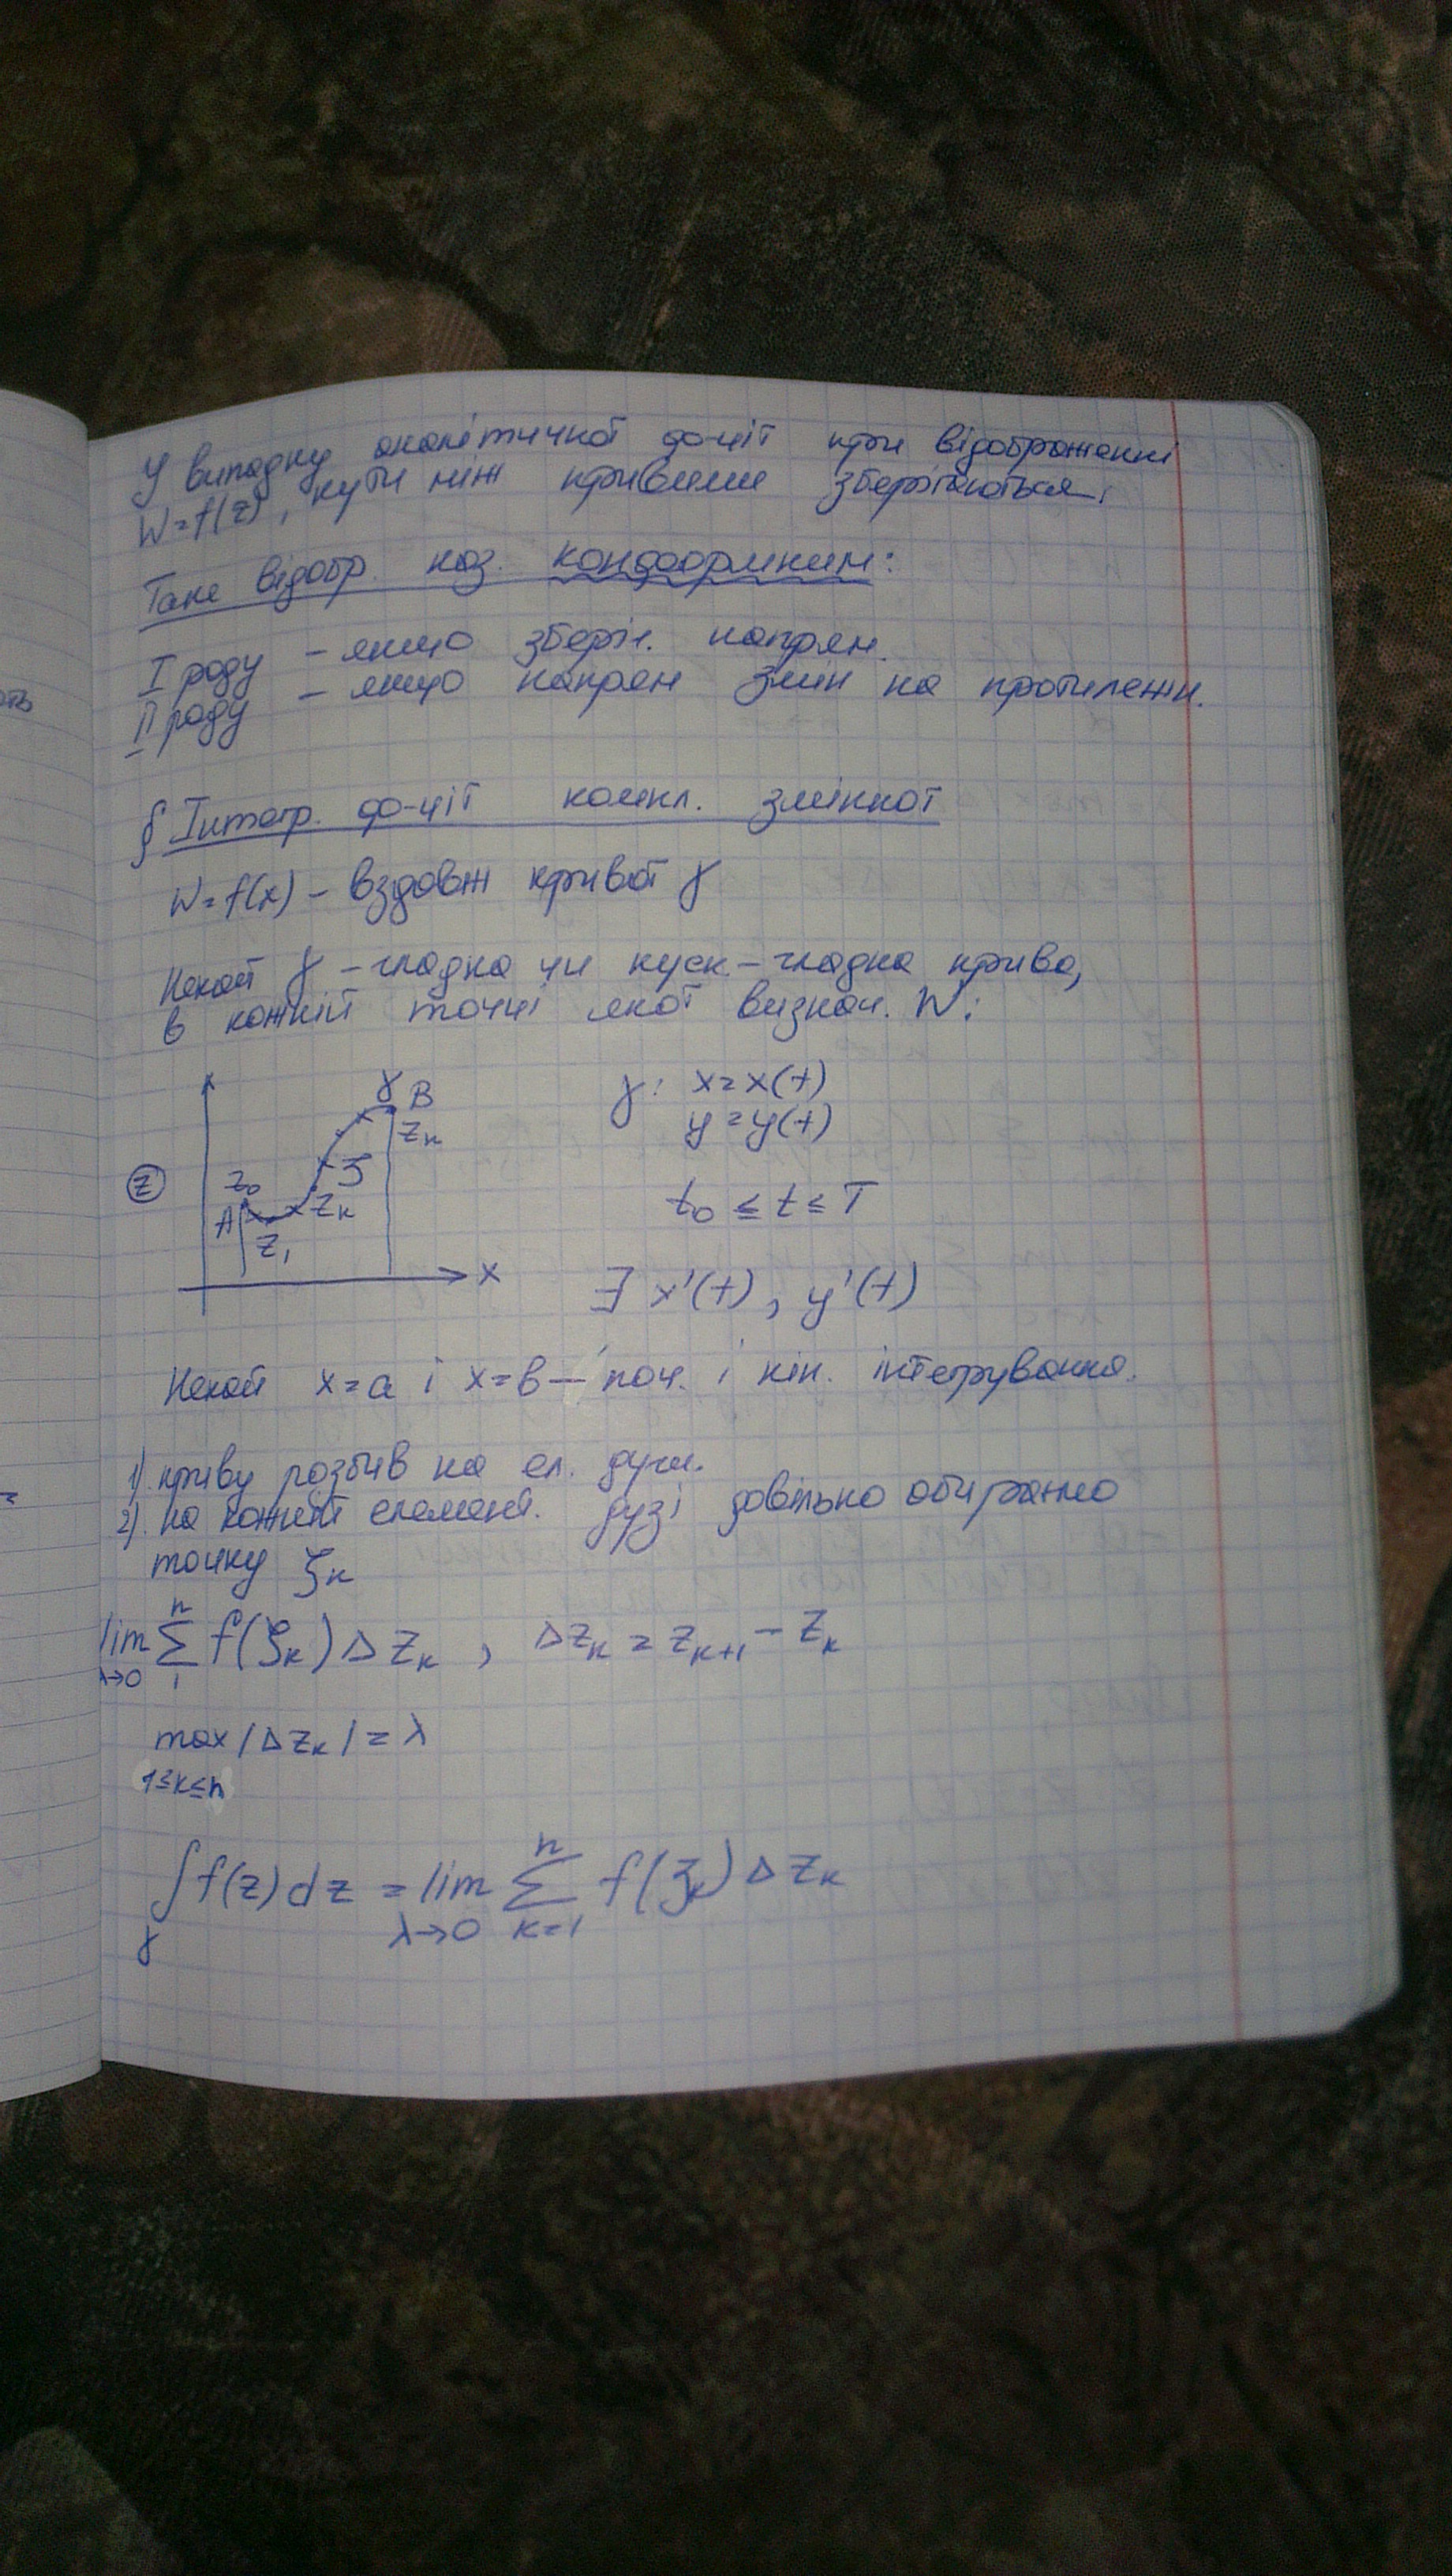 У випадку аналітичної ф-ції при відображенні
W=f(z), кути між кривими зберігаються.
Таке відобр. наз. конформним:
I роду – якщо зберіг. напрям.
II роду – якщо напрям змін на протилежн.
§ Інтегр. ф-ції компл. змінної
W=f(x) – вздовж кривої γ
Нехай γ – гладка чи куск.-гладка крива,
в кожній точці якої визнач. W:
γ B
z₀ A z₁ zₖ ζ zₙ
Ⓩ
x
γ: x=x(t)
y=y(t)
t₀ ≤ t ≤ T
∃ x'(t), y'(t)
Нехай x=a і x=b – поч. і кін. інтегрування.
1). криву розбив на ел. дуги.
2). на кожній елемент. дузі довільно обираємо
точку ζₖ
lim λ→0 ∑₁ⁿ f(ζₖ)Δzₖ, Δzₖ = zₖ₊₁ – zₖ
max|Δzₖ|=λ
1≤k≤n
∫ f(z)dz = lim ∑ f(ζₖ)Δzₖ
γ λ→0 k=1 n